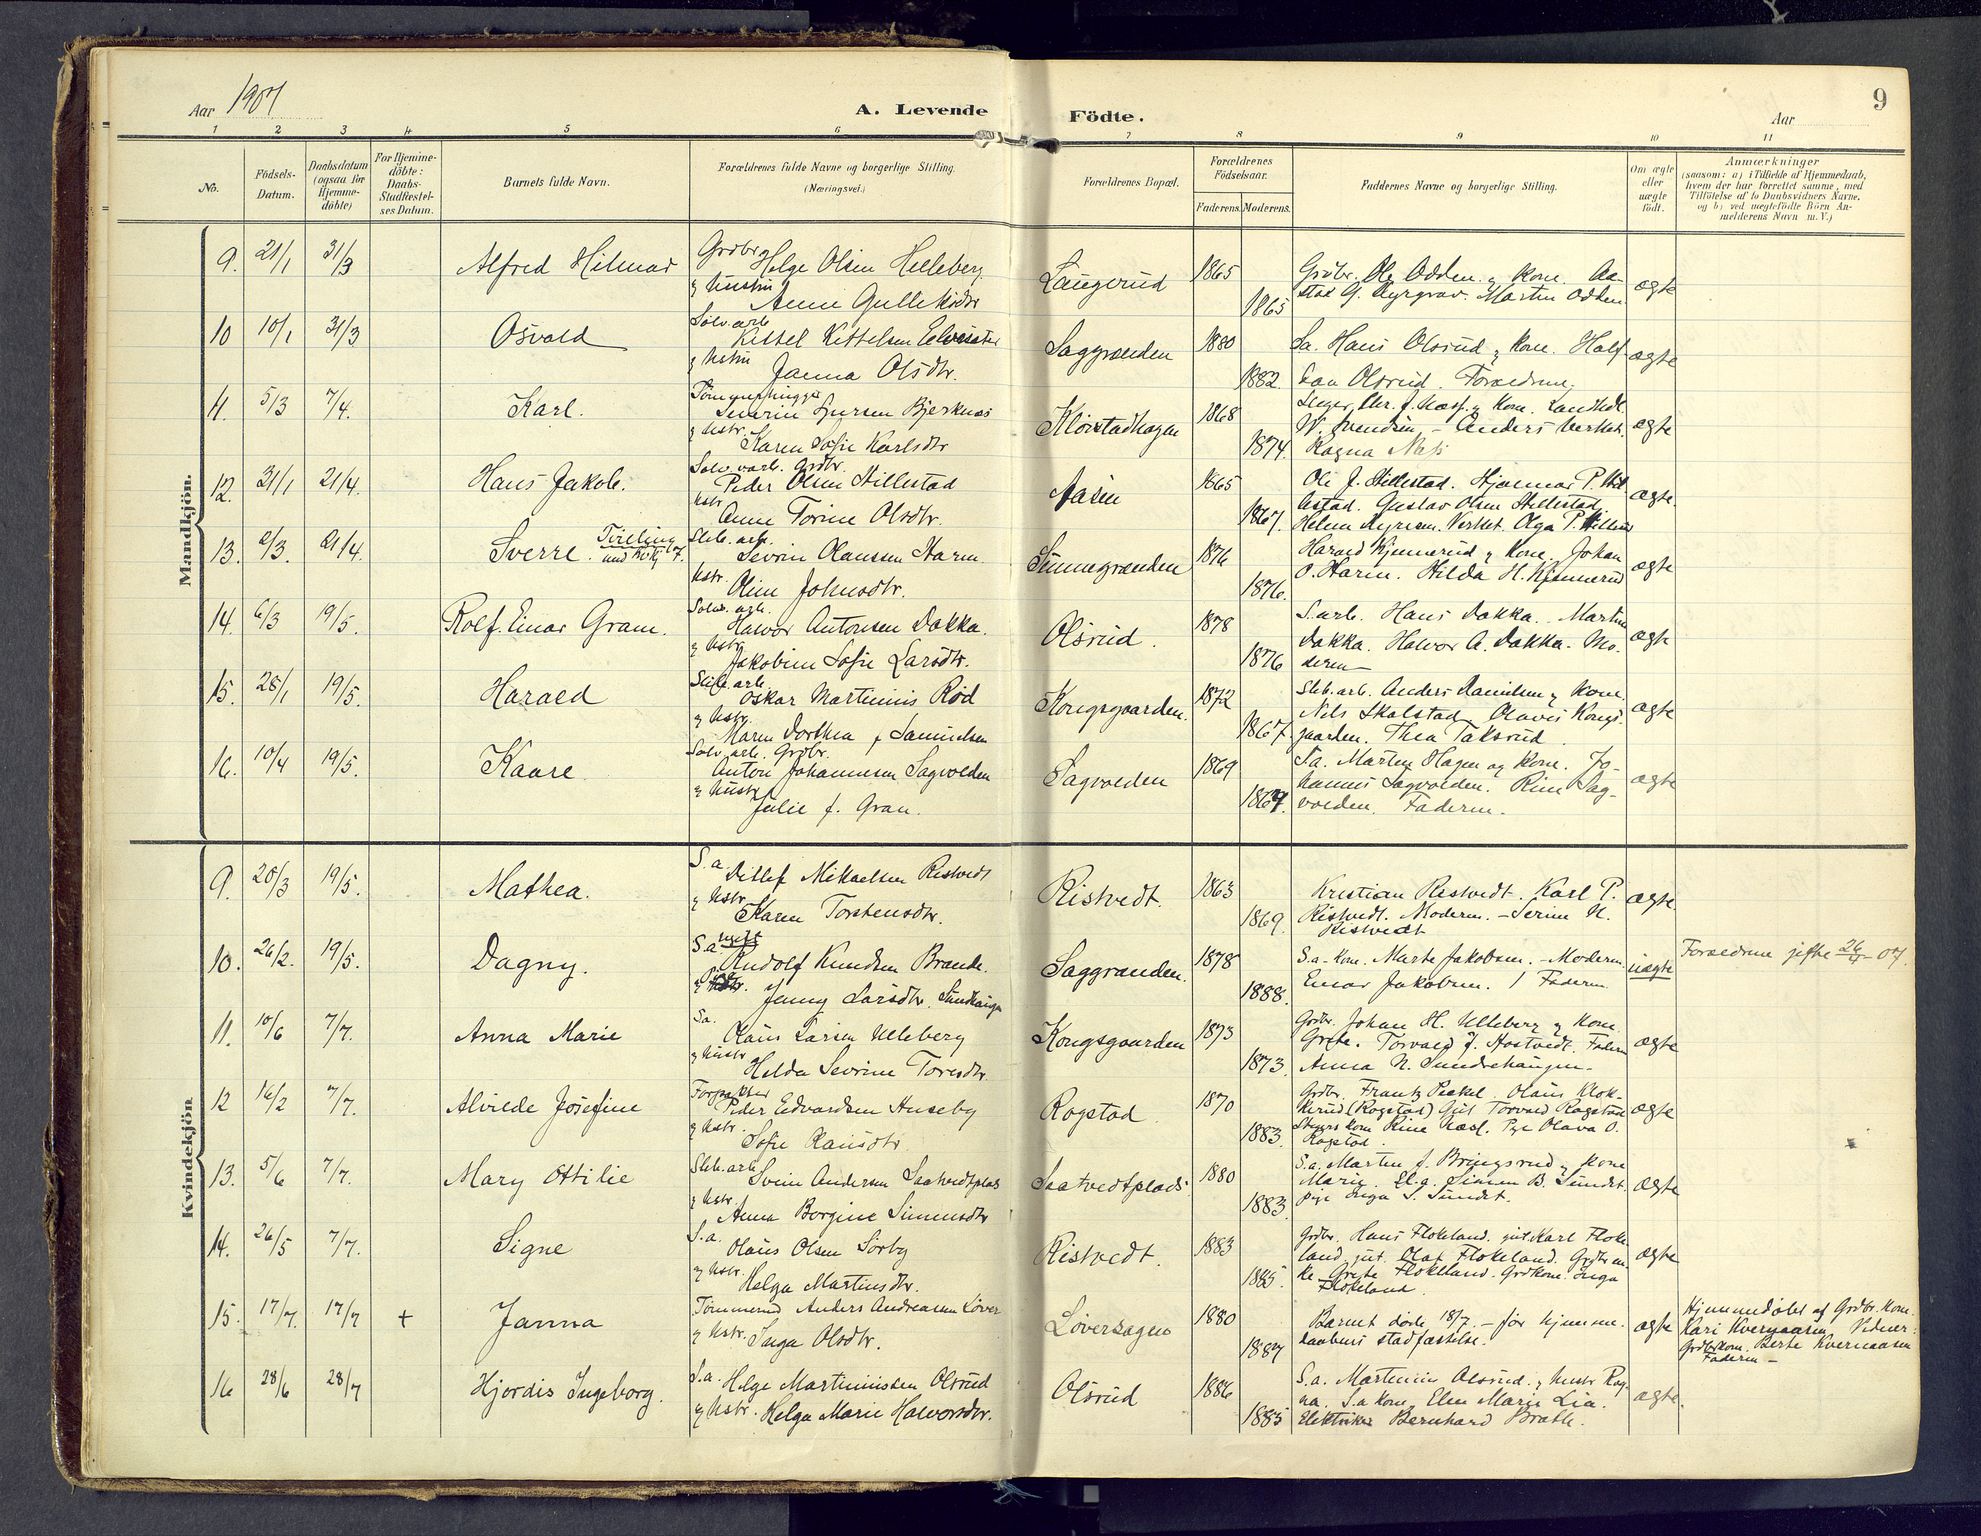 Aar 1907
A. Levende Födte.
Aar
9
1 2 3 4 5 6 7 8 9 10 11
No.
Födsels-
Datum.
Daabsdatum
(ogsaa for
Hjemme-
döbte)
For Hjemme-
döbte:
Daabs-
Stadfæstel-
ses Datum.
Barnets fulde Navn.
Forældrenes fulde Navne og borgerlige Stilling.
(Næringsvei.)
Forældrenes Bopæl.
Forældrenes
Födselsaar.
Faderens. Moderens.
Faddernes Navne og borgerlige Stilling.
Om ægte
eller
uægte
födt.
Anmærkninger
(saasom: a) i Tilfælde af Hjemmedaab,
hvem der har forrettet samme, med
Tilföielse af to Daabsvidners Navne,
og b) ved uægtefödte Börn An-
melderens Navn m. V.)
Mandkjön.
9. 21/1 31/3 Alfred Hilmar
Grdbr. Helge Olsen Helleberg
g hustru
Anne Gulleksdtr
Laugerud 1865 1865
Grdbr. Ole Odden g kone. Aa-
G. Myrgrav. Martin Odden
ægte
10 10/1 31/3 Osvald
Sølv.arb
Kittel Kittelsen
g hstru
Janna Olsdtr.
Saggrænden 1880 1882.
S.a. Hans Olsrud g kone. Half-
Olsrud. Forældrene.
ægte
11. 5/3 7/4. Karl.
Tømmerhugger
Severin Bjerknæs
g hustr.
Karen Sofie Karlsdtr
1868 1874.
W. Svendsen - Anders Verket.
Ragna Næss
ægte
12. 31/1 21/4. Hans Jakob.
Sølvarb. Grdbr.
Peder Olsen Hillestad
hstr.
Anne Torine Olsdtr.
Aasen 1865 1867.
Ole J. Hillestad. Hjalmar P. Hil-
lestad. Gustav Olsen Hillestad.
Helene Myrene. Verket. Olga P. Hilles
ægte
13. 2/3. 21/4. Sverre. Tvilling
und Kvkj 7.
Slib. arb.
Sevrin Olausen Harm.
hstr.
Oline Johnsdtr.
1876 1876.
Harald Kjennerud g kone. Johan
O. Harm. Hilda H. Kjennerud
ægte
14. 6/3 19/5. Rolf Einar Gram.
Sølv. arb.
Halvor Antonsen Dokka.
g hstr.
Jakobine Sofie Larsdtr.
Olsrud. 1878 1876
S.arb. Hans Dokka. Martin
Dokka. Halvor A. Dokka. Mo-
deren
ægte
15. 28/1 19/5. Harald
Slib.arb.
Oskar Martinius Rød
g hstr.
Maren Dorthea f. Samuelsen
Kongsgaarden. 1872 1867.
Slib.arb. Anders Danielsen g kone.
Nils Skalstad. Olavis Kongs-
gaarden. Thea Taksrud.
ægte
16. 10/4 19/5. Kaare.
Sølv. arb. Grdbr.
Anton Johannesen Sagvolden
g hustr
Julie f. Gran.
Sagvolden 1869
S.a. Marten Hagen og kone. Jo-
hannes Sagvolden. Rine Sag-
volden. Faderen.
ægte
Kvindekjön
9. 20/3 19/5. Mathea.
S.a.
Ditlef Mikaelsen Ristvedt
g hstr.
Karen Torstensdtr.
Ristvedt. 1863 1869.
Kristian Ristvedt. Karl P.
Ristvedt. Moderen. - Serine N.
Ristvedt
ægte.
10. 26/2. 19/5. Dagny.
S.a ugift
Rudolf Knudsen Brænde.
Jenny Larsdtr.
Saggrænden. 1878 1888.
S.a- kone. Marte Jakobsen. - Moderen
Einar Jakobsen. / Faderen
uægte
Forældrene gifte 26/5-07.
11. 10/6 7/7. Anna Marie
S.a.
Olaus Larsen Ulleberg
g hustr
Helda Sevrine Toresdtr.
Kongsgaarden 1873 1873.
Grdbr. Johan H. Ulleberg g kone.
Grete. Torvald J. Hostvedt. Faderen
Anna N. Sundrehaugen.
ægte
12 16/2 7/7. Alvilde Josefine
Forpakter
Peder Edvardsen Huseby
g hstr.
Sofie Hansdtr.
Rogstad 1870 1883.
Grdbr. Frantz Peckel. Olaus Klok-
kerud (Rogstad) Gut Torvald Rogstad
kone Rine Næss. Pige Olava O.
Rogstad.
ægte
13. 5/6 7/7. Mary Ottilie
Slib.arb
Svein Andersen Saatvedtplas
g hstr.
Anna Bergine Simensdtr
Saatvedtplads 1880 1883.
S.a. Marten J. Bringsrud g kone
Marie. El.a. Simen B. Sundet.
pige Inga S. Sundet.
ægte
14. 26/5 7/7. Signe
S.a.
Olaus Olsen Sørby
g hstr.
Helga Martinsdtr.
Ristvedt. 1883 1885.
Grdbr. Hans Flokeland. gut Karl Floke-
land, gut. Olaf Flokeland. Grdbr.en-
ke Grete Flokeland. Grdkone. Inga
Flokeland.
ægte
15. 17/7. 17/7 + Janna
Tømmermd Anders Andreassen Løver
g hstr. Inga Olsdtr.
Løversagen 1880 1887
Barnet døde 18/7. - før hjemme-
daabens stadfæstelse.
ægte
Hjemmedøbt af Grdbr. kone.
Kari Kvernaasen Vidner:
Grdbrkone. Berte Kvernaasen
Faderen -
16 28/6 28/7 Hjordis Ingeborg.
S.a. Helge Martiniussen Olsrud
g hstr. Helga Marie Halvorsdtr.
Olsrud 1886 1885
S.a. Martinius Olsrud. g hustr Rag-
na. S.a kone. Elen Marie Lia.
Elektriker Bernhard Bratli.
ægte.